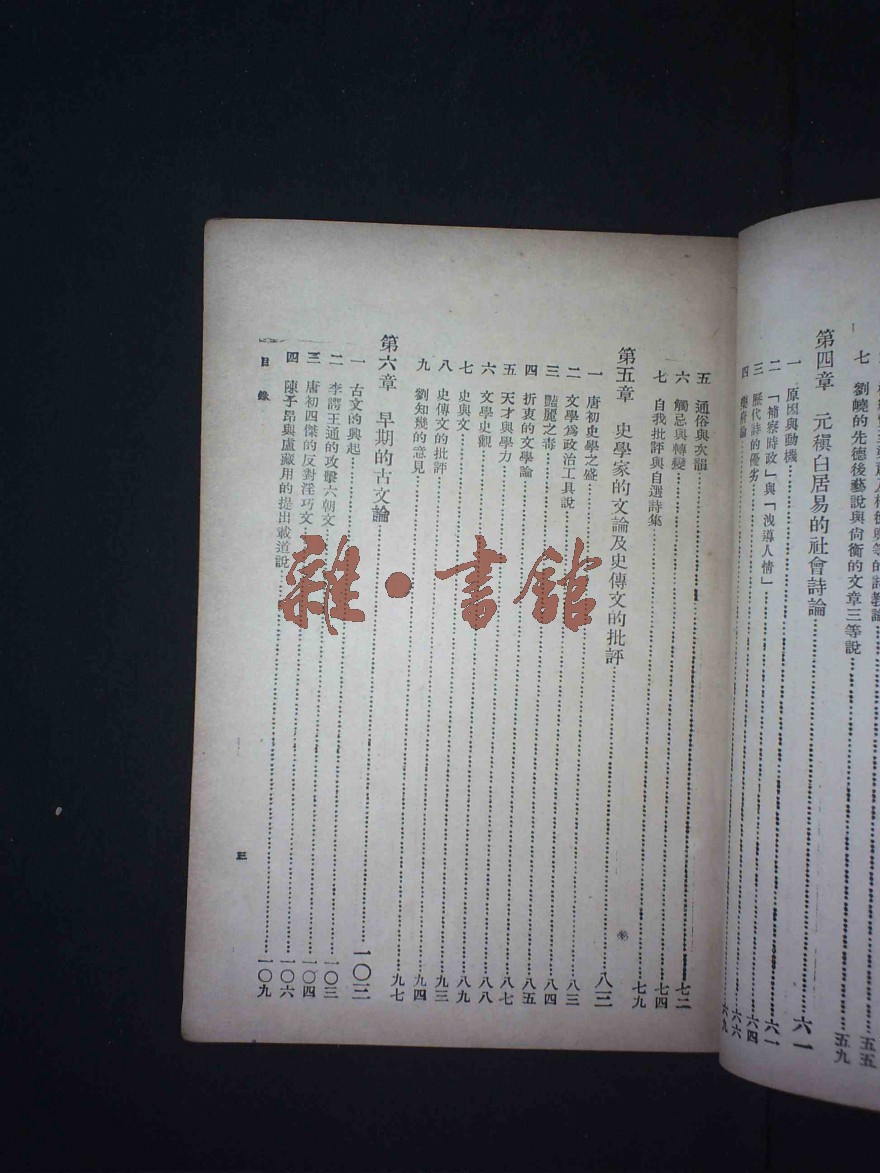 等的詩教論……五五
七 劉嶢的先德後藝說與尙衡的文章三等說……五九
第四章 元稹白居易的社會詩論……六一
一 原因與動機……六一
二 「補察時政」與「洩導人情」……六四
三 歷代詩的優劣……六六
四 樂府論……六九
五 通俗與次韻……七二
六 觸忌與轉變……七四
七 自我批評與自選詩集……七九
第五章 史學家的文論及史傳文的批評……八三
一 唐初史學之盛……八三
二 文學爲政治工具說……八四
三 豔麗之毒……八五
四 折衷的文學論……八七
五 天才與學力……八八
六 文學史觀……八九
七 史與文……九三
八 史傳文的批評……九四
九 劉知幾的意見……九七
第六章 早期的古文論……一〇三
一 古文的興起……一〇三
二 李諤王通的攻擊六朝文……一〇四
三 唐初四傑的反對淫巧文……一〇六
四 陳子昂與盧藏用的提出載道說……一〇九
目錄
三
雜·書館